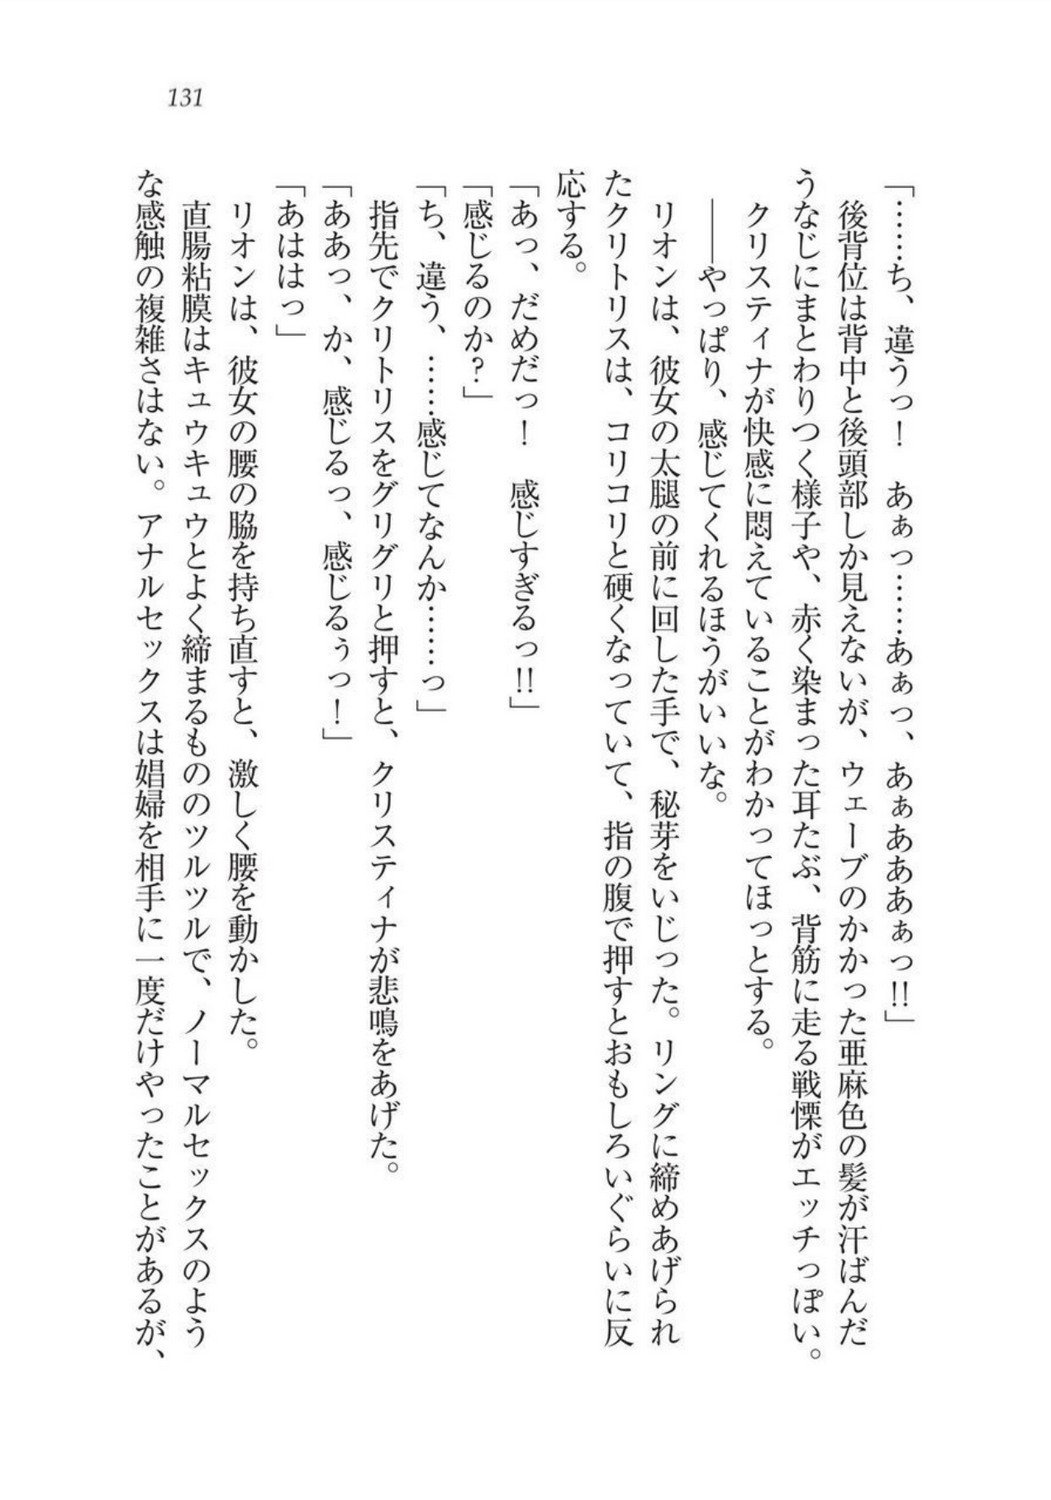 131
「……ち、違うっ！　あぁっ……あぁっ、あぁあああぁっ!!」
　後背位は背中と後頭部しか見えないが、ウェーブのかかった亜麻色の髪が汗ばんだ
うなじにまとわりつく様子や、赤く染まった耳たぶ、背筋に走る戦慄がエッチっぽい。
　クリスティナが快感に悶えていることがわかってほっとする。
　――やっぱり、感じてくれるほうがいいな。
　リオンは、彼女の太腿の前に回した手で、秘芽をいじった。リングに締めあげられ
たクリトリスは、コリコリと硬くなっていて、指の腹で押すとおもしろいぐらいに反
応する。
「あっ、だめだっ！　感じすぎるっ!!」
「感じるのか？」
「ち、違う、……感じてなんか……っ」
　指先でクリトリスをグリグリと押すと、クリスティナが悲鳴をあげた。
「ああっ、か、感じるっ、感じるぅっ！」
「あははっ」
　リオンは、彼女の腰の脇を持ち直すと、激しく腰を動かした。
　直腸粘膜はキュウキュウとよく締まるもののツルツルで、ノーマルセックスのよう
な感触の複雑さはない。アナルセックスは娼婦を相手に一度だけやったことがあるが、